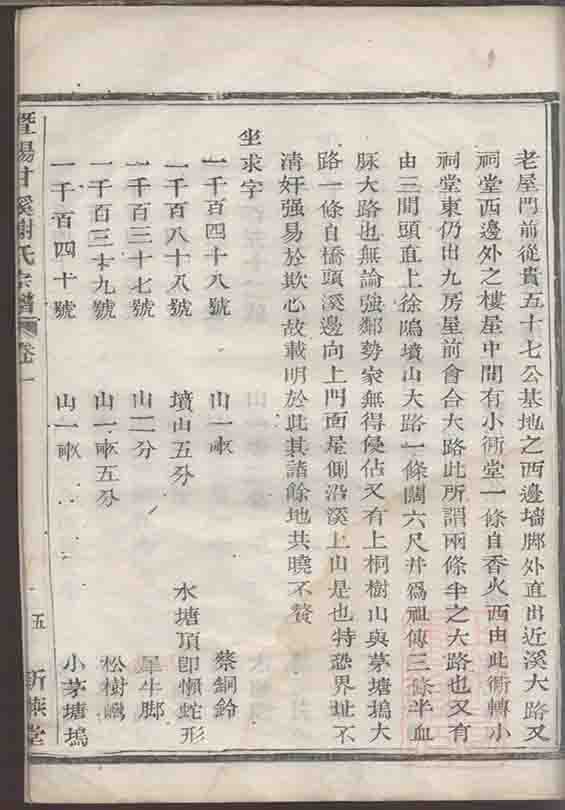 老屋門前從貴五十七公基地之西邊墻脚外直出近溪大路又
祠堂西邊外之樓屋中間有小衖堂一條自香火西由此衖轉小
祠堂東仍出九房屋前會合大路此所謂兩條半之大路也又有
由三間頭直上徐塢墳山大路一條闊六尺并爲祖傳三條半血
脉大路也無論強鄰勢家無得侵佔又有上桐樹山與茅塘塢大
路一條自橋頭溪邊向上門面屋側沿溪上山是也特恐界址不
清奸强易於欺心故載明於此其諸餘地共曉不贅
坐求字
一千百四十八號 山一畝 蔡銅鈴
一千百八十八號 墳山五分 水塘頂即懶蛇形
一千百三十七號 山一分 犀牛脚
一千百三十九號 山一畝五分 松樹嶼
一千百四十號 山一畝 小茅塘塢
暨陽甘溪謝氏宗譜 卷一 五 堂